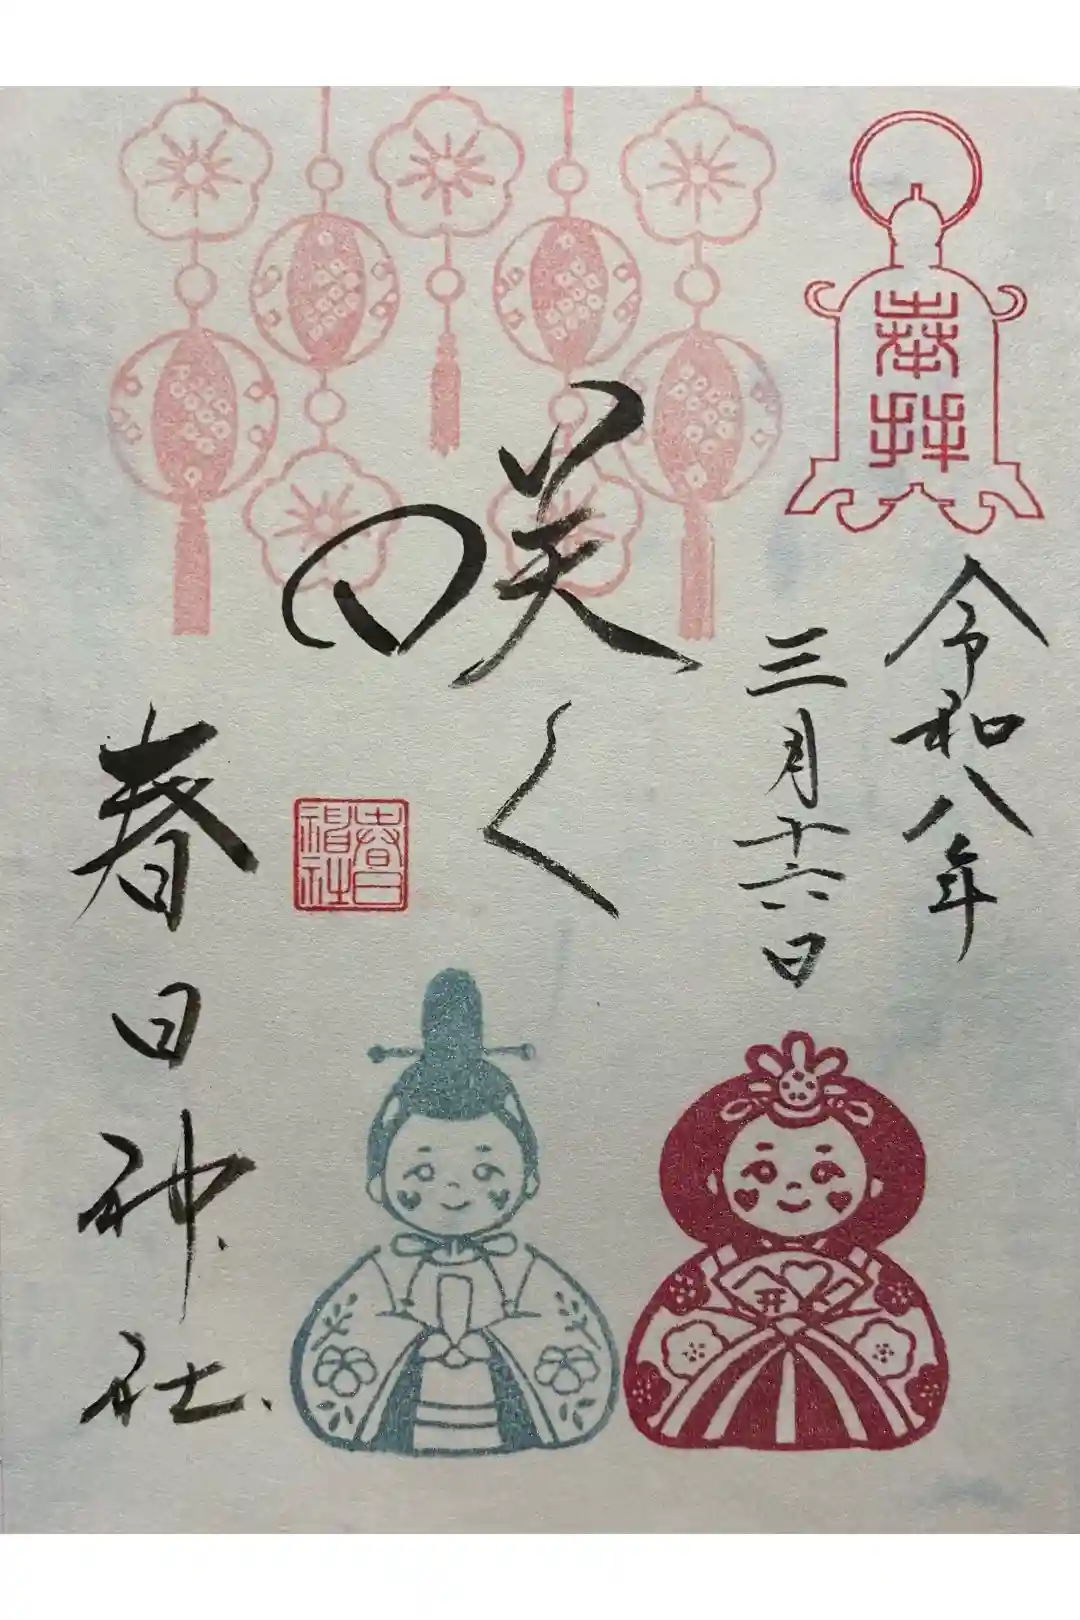 奉拝
令和八年
三月十六日
咲く
春日神社
春日
神社